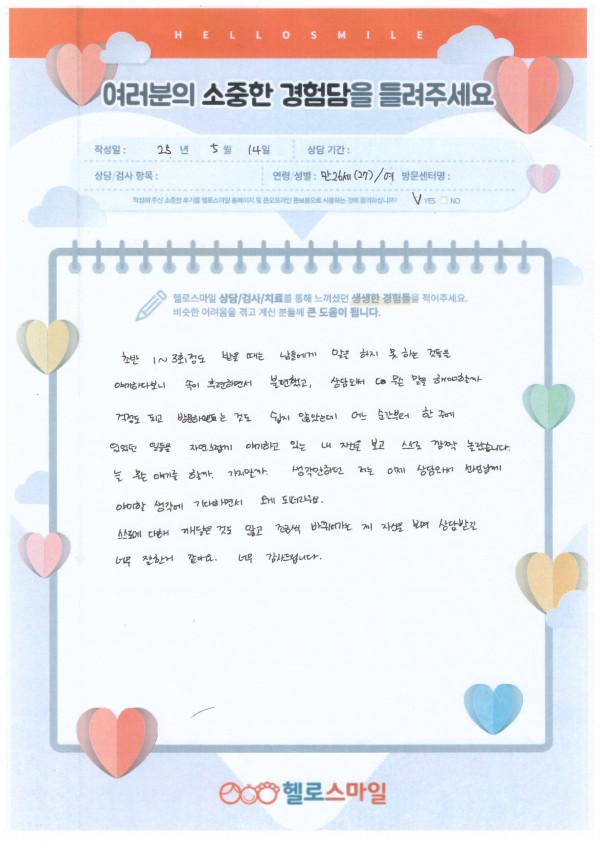 HELLOSMILE
여러분의 소중한 경험담을 들려주세요
작성일 : 25 년 5 월 14 일 상담 기간 :
상담/검사 항목 : 연령/성별 : 만26세(27)/여 방문센터명 :
작성해 주신 소중한 후기를 헬로스마일 홈페이지 및 온오프라인 홍보용으로 사용하는 것에 동의하십니까? V YES NO
헬로스마일 상담/검사/치료를 통해 느끼셨던 생생한 경험들을 적어주세요.
비슷한 어려움을 겪고 계신 분들께 큰 도움이 됩니다.
초반 1~3회정도 받을 때는 남들에게 말을 하지 못 하는 것들을
얘기하다보니 속이 후련하면서 불편했고, 상담와서 무슨 말을 해야할까
걱정도 되고 방문하는 것도 쉽지 않았는데 어느 순간부터 한 주에
있었던 일들을 자연스럽게 얘기하고 있는 내 자신을 보고 스스로 깜짝 놀랐습니다.
늘 무슨 얘기를 할까. 가지말까. 생각만하던 저는 이제 상담와서 선생님께
이야기할 생각에 기대하면서 오게 되더라구요.
스스로에 대해 깨달은 것도 많고 점점씩 바뀌어가는 제 자신을 보며 상담받고
너무 잘한거 같아요. 너무 감사드립니다.
헬로스마일